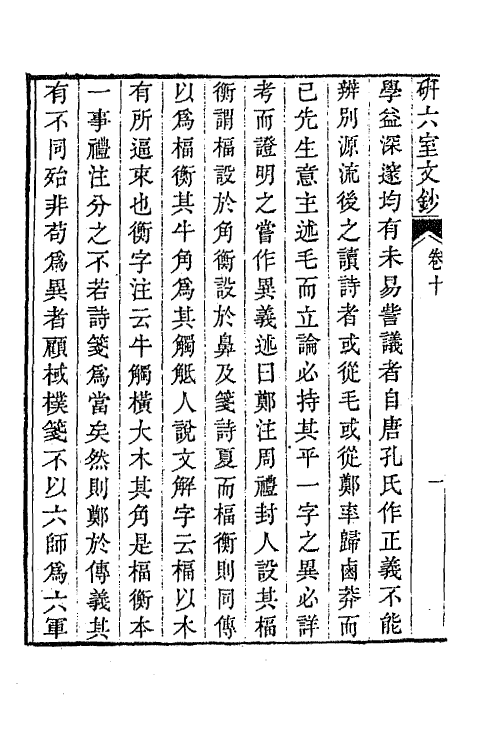 硏六室文鈔
卷十
一
學益深邃均有未易訾議者自唐孔氏作正義不能
辨別源流後之讀詩者或從毛或從鄭率歸鹵莽而
已先生意主述毛而立論必持其平一字之異必詳
考而證明之嘗作異義述曰鄭注周禮封人設其楅
衡謂楅設於角衡設於鼻及箋詩夏而楅衡則同傳
以爲楅衡其牛角爲其觸觝人說文解字云楅以木
有所逼束也衡字注云牛觸橫大木其角是楅衡本
一事禮注分之不若詩箋爲當矣然則鄭於傳義其
有不同殆非苟爲異者顧棫樸箋不以六師爲六軍